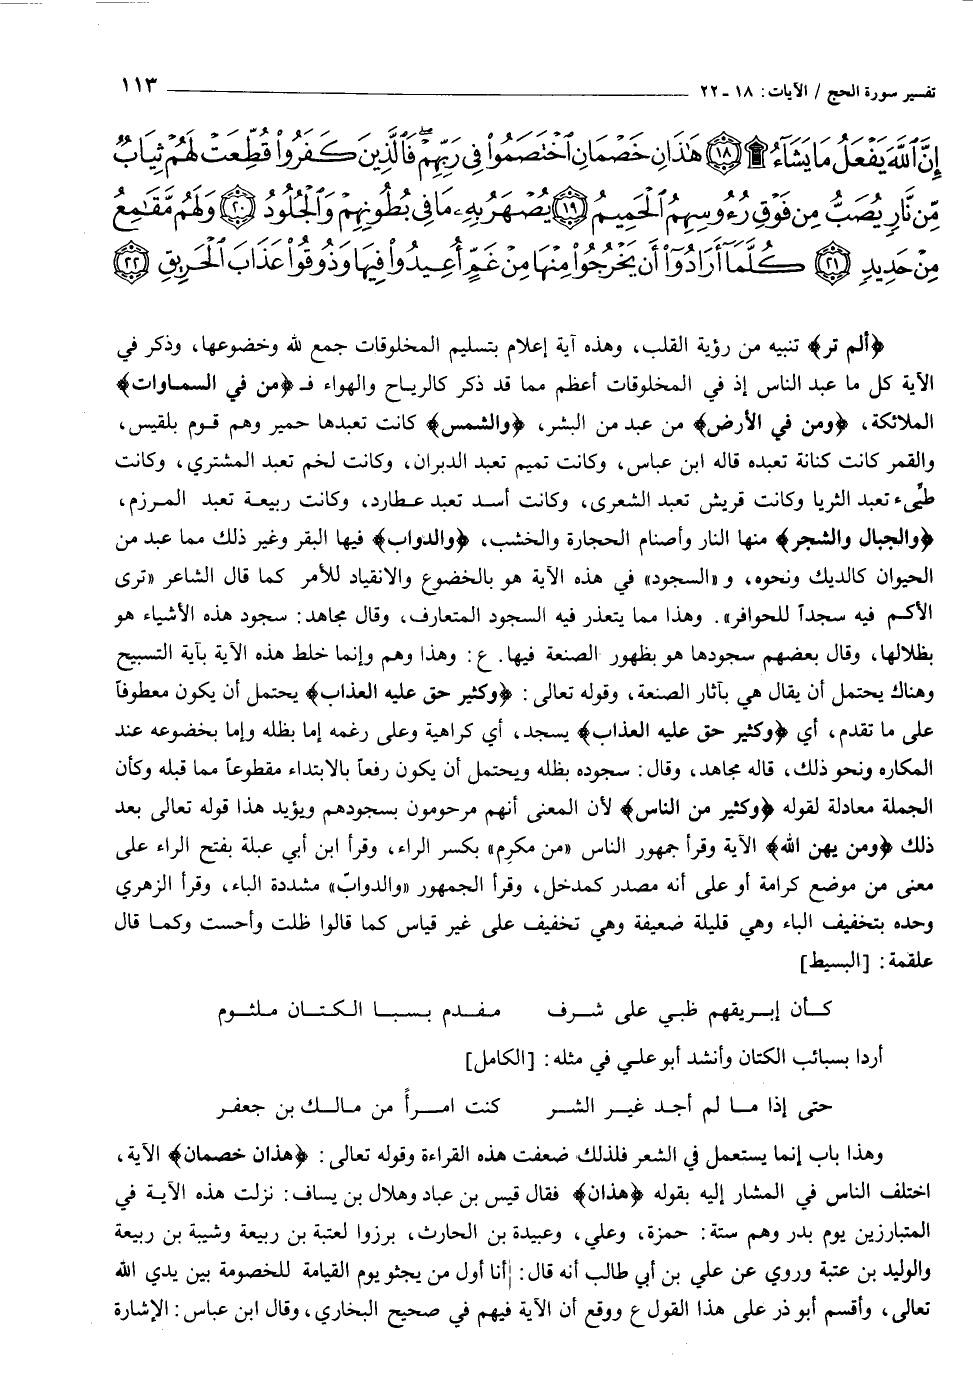 تفسير سورة الحج / الآيات: ١٨ - ٢٢ ١١٣
إِنَّ ٱللَّهَ يَفْعَلُ مَا يَشَآءُ ۩ ﴿١٨﴾ هَٰذَانِ خَصْمَانِ ٱخْتَصَمُوا۟ فِى رَبِّهِمْ ۖ فَٱلَّذِينَ كَفَرُوا۟ قُطِّعَتْ لَهُمْ ثِيَابٌ
مِّن نَّارٍ يُصَبُّ مِن فَوْقِ رُءُوسِهِمُ ٱلْحَمِيمُ ﴿١٩﴾ يُصْهَرُ بِهِۦ مَا فِى بُطُونِهِمْ وَٱلْجُلُودُ ﴿٢٠﴾ وَلَهُم مَّقَٰمِعُ
مِنْ حَدِيدٍ ﴿٢١﴾ كُلَّمَآ أَرَادُوٓا۟ أَن يَخْرُجُوا۟ مِنْهَا مِنْ غَمٍّ أُعِيدُوا۟ فِيهَا وَذُوقُوا۟ عَذَابَ ٱلْحَرِيقِ ﴿٢٢﴾
﴿ألم تر﴾ تنبيه من رؤية القلب، وهذه آية إعلام بتسليم المخلوقات جمع لله وخضوعها، وذكر في
الآية كل ما عبد الناس إذ في المخلوقات أعظم مما قد ذكر كالرياح والهواء فـ ﴿من في السماوات﴾
الملائكة، ﴿ومن في الأرض﴾ من عبد من البشر، ﴿والشمس﴾ كانت تعبدها حمير وهم قوم بلقيس،
والقمر كانت كنانة تعبده قاله ابن عباس، وكانت تميم تعبد الدبران، وكانت لخم تعبد المشتري، وكانت
طيِّىء تعبد الثريا وكانت قريش تعبد الشعرى، وكانت أسد تعبد عطارد، وكانت ربيعة تعبد المرزم،
﴿والجبال والشجر﴾ منها النار وأصنام الحجارة والخشب، ﴿والدواب﴾ فيها البقر وغير ذلك مما عبد من
الحيوان كالديك ونحوه، و «السجود» في هذه الآية هو بالخضوع والانقياد للأمر كما قال الشاعر «ترى
الأكم فيه سجداً للحوافر». وهذا مما يتعذر فيه السجود المتعارف، وقال مجاهد: سجود هذه الأشياء هو
بظلالها، وقال بعضهم سجودها هو بظهور الصنعة فيها. ع: وهذا وهم وإنما خلط هذه الآية بآية التسبيح
وهناك يحتمل أن يقال هي بآثار الصنعة، وقوله تعالى: ﴿وكثير حق عليه العذاب﴾ يحتمل أن يكون معطوفاً
على ما تقدم، أي ﴿وكثير حق عليه العذاب﴾ يسجد، أي كراهية وعلى رغمه إما بظله وإما بخضوعه عند
المكاره ونحو ذلك، قاله مجاهد، وقال: سجوده بظله ويحتمل أن يكون رفعاً بالابتداء مقطوعاً مما قبله وكأن
الجملة معادلة لقوله ﴿وكثير من الناس﴾ لأن المعنى أنهم مرحومون بسجودهم ويؤيد هذا قوله تعالى بعد
ذلك ﴿ومن يهن الله﴾ الآية وقرأ جمهور الناس «من مكرِم» بكسر الراء، وقرأ ابن أبي عبلة بفتح الراء على
معنى من موضع كرامة أو على أنه مصدر كمدخل، وقرأ الجمهور «والدوابّ» مشددة الباء، وقرأ الزهري
وحده بتخفيف الباء وهي قليلة ضعيفة وهي تخفيف على غير قياس كما قالوا ظلت وأحست وكما قال
علقمة: [البسيط]
كأن إبريقهم ظبي على شرف مفدم بسبا الكتان ملثوم
أردا بسبائب الكتان وأنشد أبو علي في مثله: [الكامل]
حتى إذا ما لم أجد غير الشر كنت امرأً من مالك بن جعفر
وهذا باب إنما يستعمل في الشعر فلذلك ضعفت هذه القراءة وقوله تعالى: ﴿هذان خصمان﴾ الآية،
اختلف الناس في المشار إليه بقوله ﴿هذان﴾ فقال قيس بن عباد وهلال بن يساف: نزلت هذه الآية في
المتبارزين يوم بدر وهم ستة: حمزة، وعلي، وعبيدة بن الحارث، برزوا لعتبة بن ربيعة وشيبة بن ربيعة
والوليد بن عتبة وروي عن علي بن أبي طالب أنه قال: أنا أول من يجثو يوم القيامة للخصومة بين يدي الله
تعالى، وأقسم أبو ذر على هذا القول ع ووقع أن الآية فيهم في صحيح البخاري، وقال ابن عباس: الإشارة